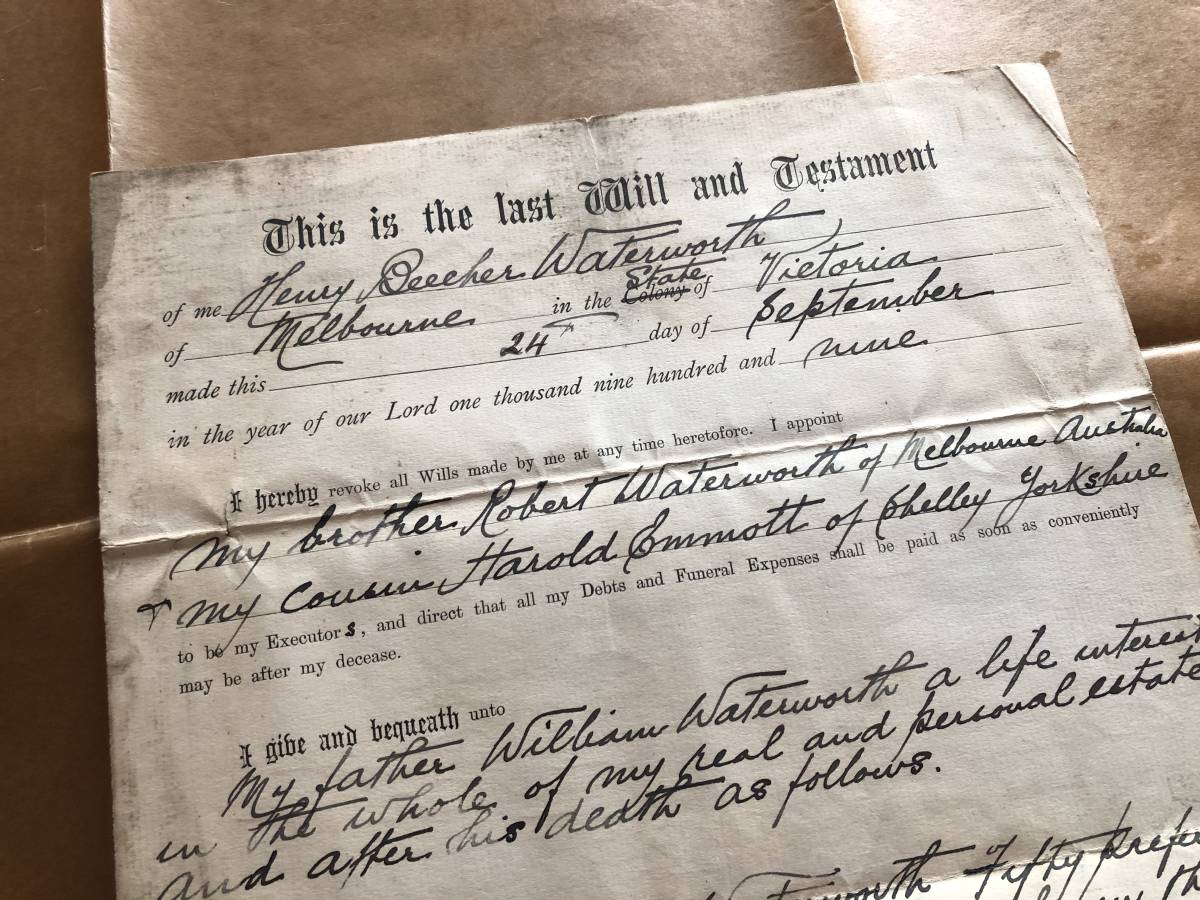 This is the last Will and Testament
of me Henry Beecher Waterworth
of Melbourne in the Colony State of Victoria
made this 24th day of September
in the year of our Lord one thousand nine hundred and nine
I hereby revoke all Wills made by me at any time heretofore. I appoint
my brother Robert Waterworth of Melbourne Australia
+ my cousin Harold Emmott of Shelley Yorkshire
to be my Executors, and direct that all my Debts and Funeral Expenses shall be paid as soon as conveniently
may be after my decease.
I give and bequeath unto
My father William Waterworth a life interest
in the whole of my real and personal estate
and after his death as follows.
Fifty